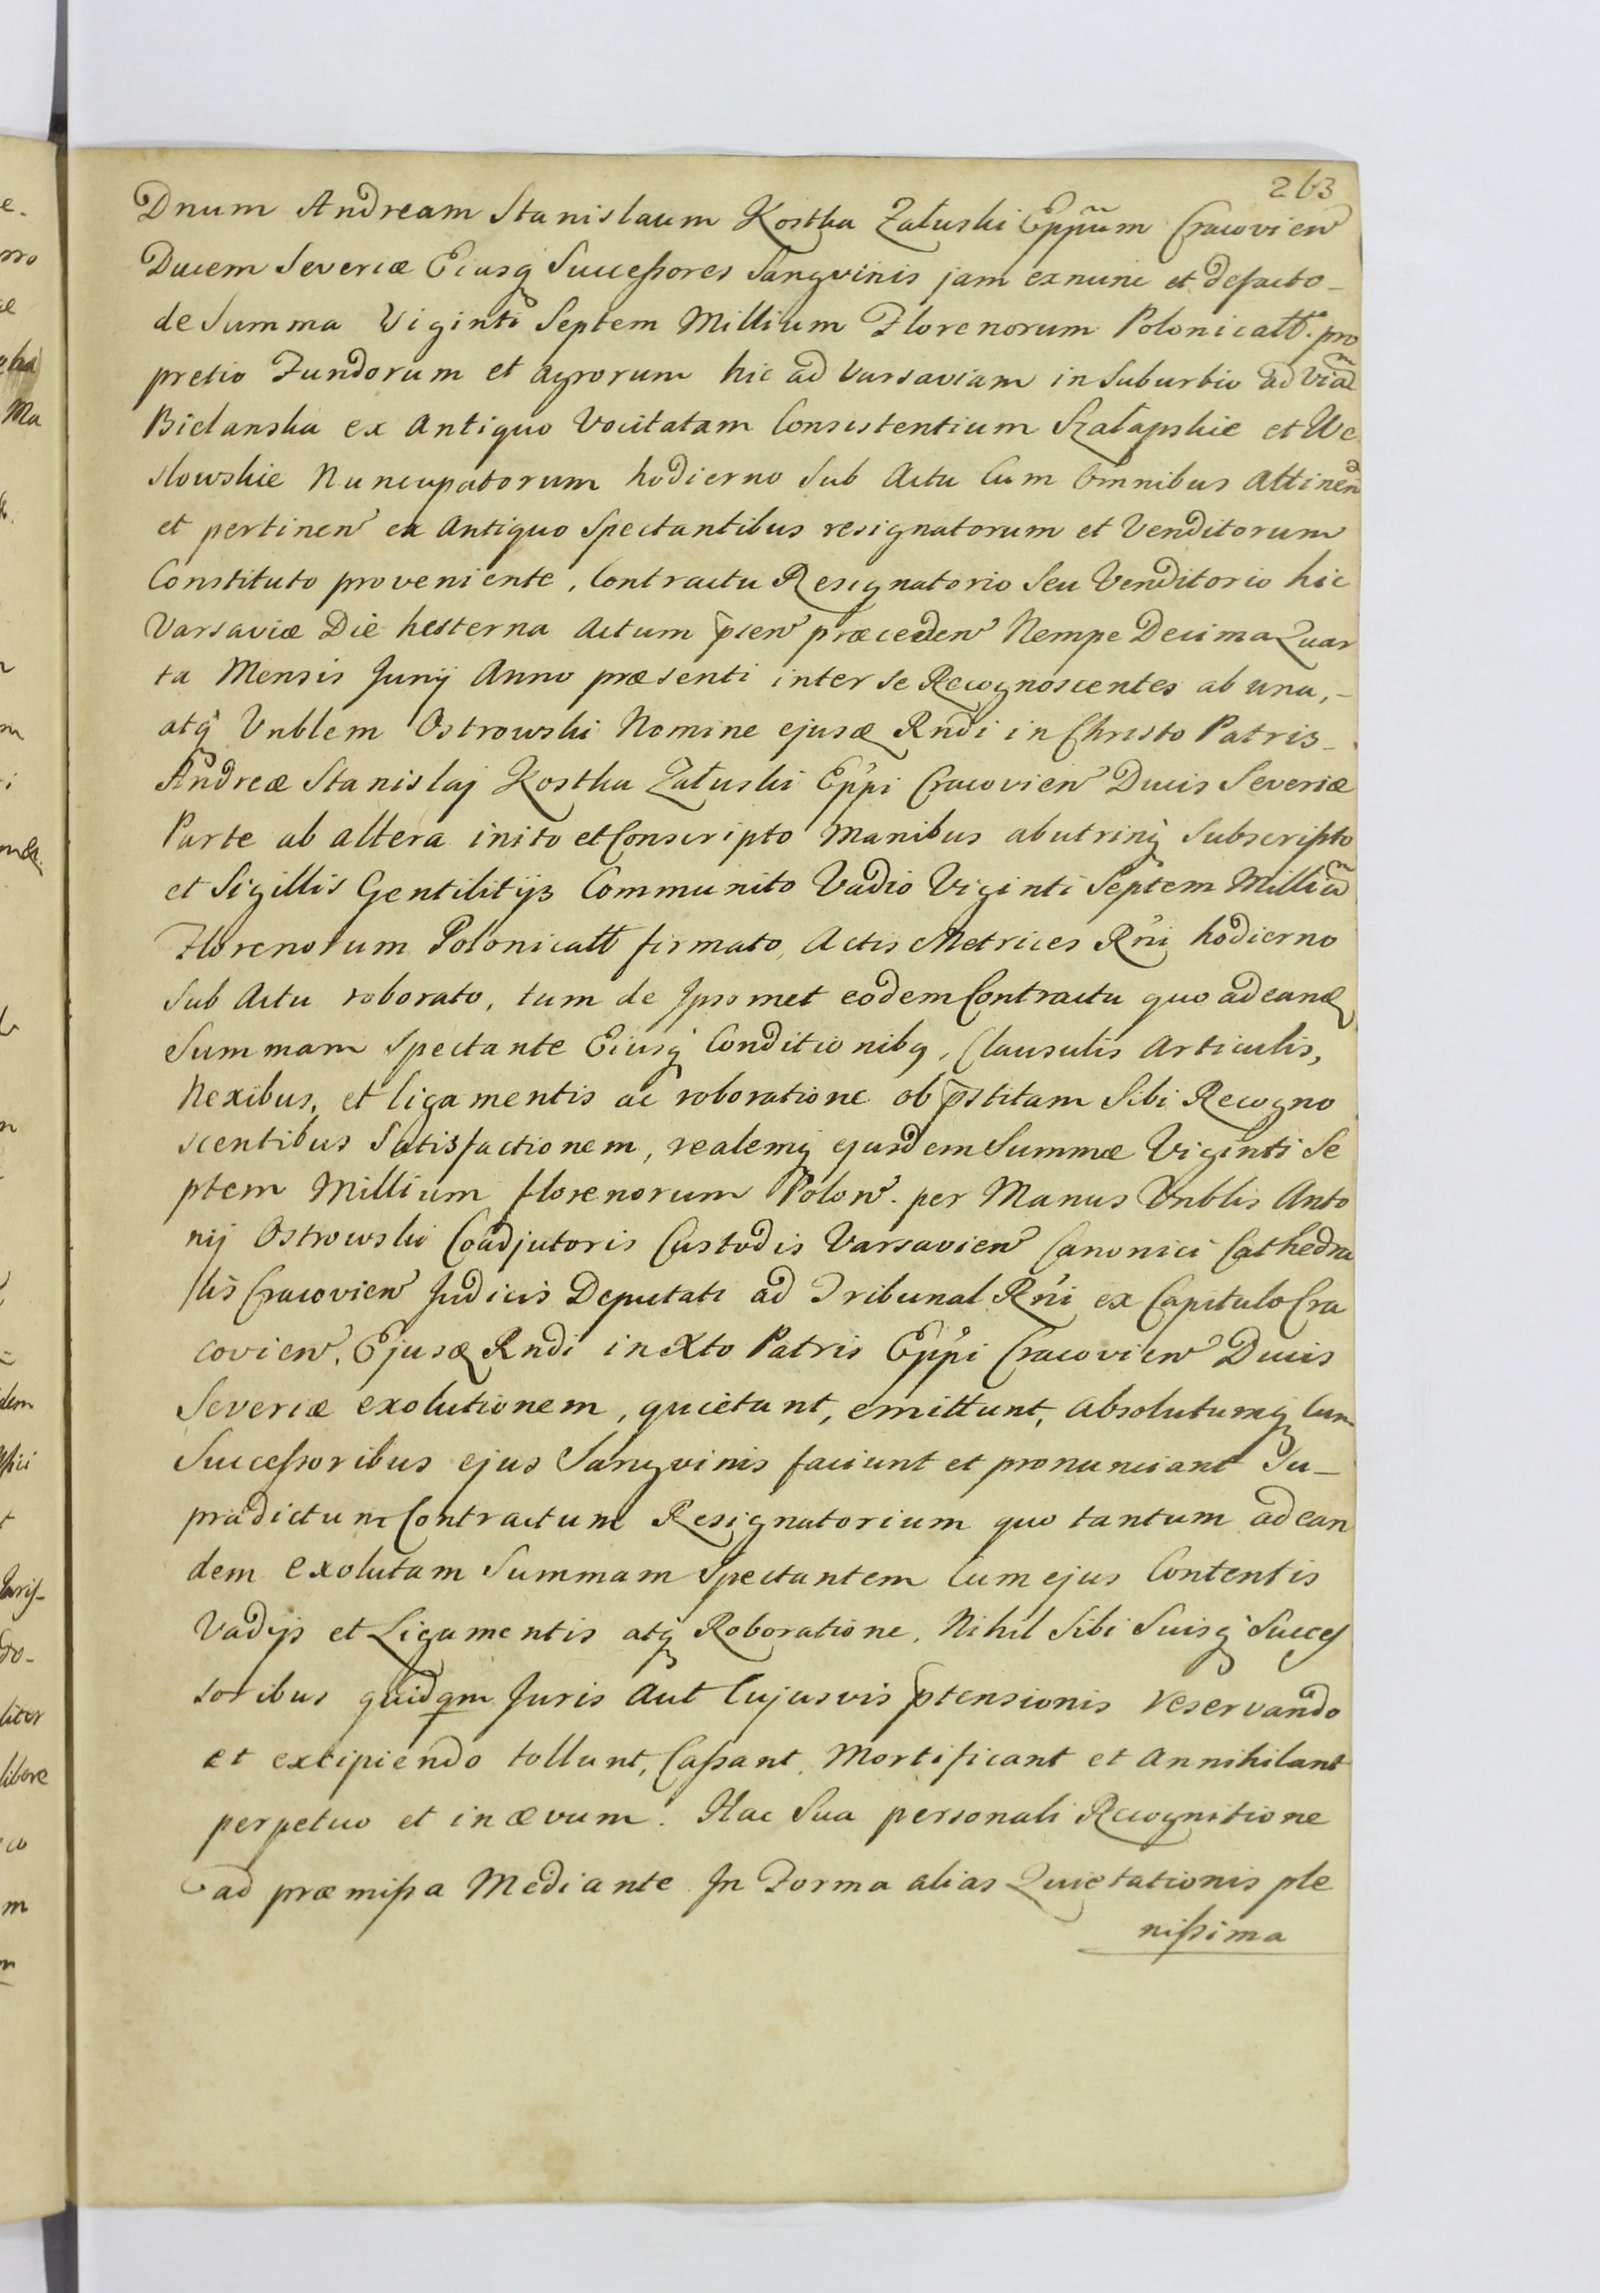 263
Dnum Andream Stanislaum Kostka Załuski Eppum Cracovien
Ducem Severiæ Eiusq Successores Sangvinis jam exnunc et defacto
de Summa Viginti Septem Millium Florenorum Polonicall. pro
pretio Fundorum et agrorum hic ad Varsaviam in Suburbio ad Viam
Bielanska ex Antiquo Vocitatam Consistentium Szałapskie et We
slowskie Nuncupatorum hodierno Sub Actu Cum Omnibus Attinen
et pertinen ex Antiquo Spectantibus resignatorum et Venditorum
Constituto proveniente, Contractu Resignatorio Seu Venditorio hic
Varsaviæ Die hesterna Actum pn̄sen præceden Nempe Decima Quar
ta Mensis Junij Anno præsenti inter se Recognoscentes ab una,
atq Vnblem Ostrowski Nomine ejusd Rndi in Christo Patris
Andreæ Stanislaj Kostka Załuski Eppi Cracovien Ducis Severiæ
Parte ab altera inito et Conscripto Manibus abutrinq Subscripto
et Sigillis Gentilitijs Communito Vadio Viginti Septem Milliū
Florenorum Polonicall firmato, Actis Metrices Rni hodierno
Sub Actu roborato, tum de Ipsomet eodem Contractu quo adeand
Summam Spectante Eiusq Conditionibq, Clausulis Articulis,
Nexibus, et ligamentis ac roboratione ob pstitam Sibi Recogno
scentibus Satisfactionem, realemq ejusdem Summæ Viginti Se
ptem Millium florenorum Polon. per Manus Vnblis Anto
nij Ostrowski Coadjutoris Custodis Varsavien Canonici Cathedra
lis Cracovien Judicis Deputati ad Tribunal Rni ex Capitulo Cra
covien, Ejusd Rndi in Xto Patris Eppi Cracovien Ducis
Severiæ exolutionem, quietant, emittunt, absolutumq Cum
Successoribus ejus Sangvinis faciunt et pronunciant Su
pradictum Contractum Resignatorium quo tantum adean
dem exolutam Summam Spectantem Cum ejus Contentis
Vadijs et Ligamentis atq Roboratione, Nihil Sibi Suisq Succes
soribus quidqm Juris Aut Cujusvis ptensionis reservando
et excipiendo tollunt, Cassant, Mortificant et Annihilant
perpetuo et in ævum. Hac Sua personali Recognitione
ad præmissa Mediante In Forma alias Quietationis ple
nissima